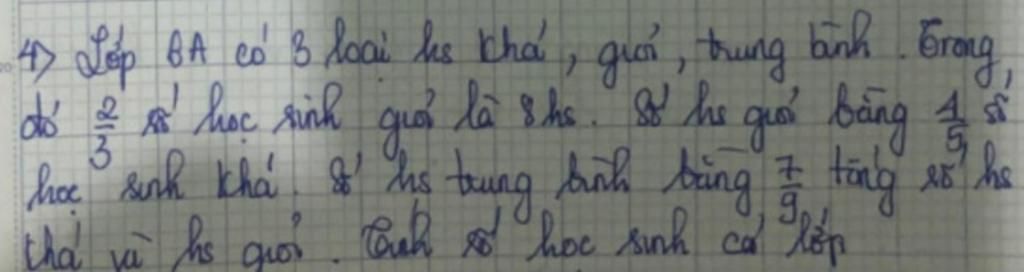 4) Lớp 6A có 3 loại hs khá, giỏi, trung bình. Trong
đó 2/3 số học sinh giỏi là 8hs. Số hs giỏi bằng 4/5 số
học sinh khá. Số hs trung bình bằng 7/9 tổng số hs
khá và hs giỏi. Tính số học sinh cả lớp